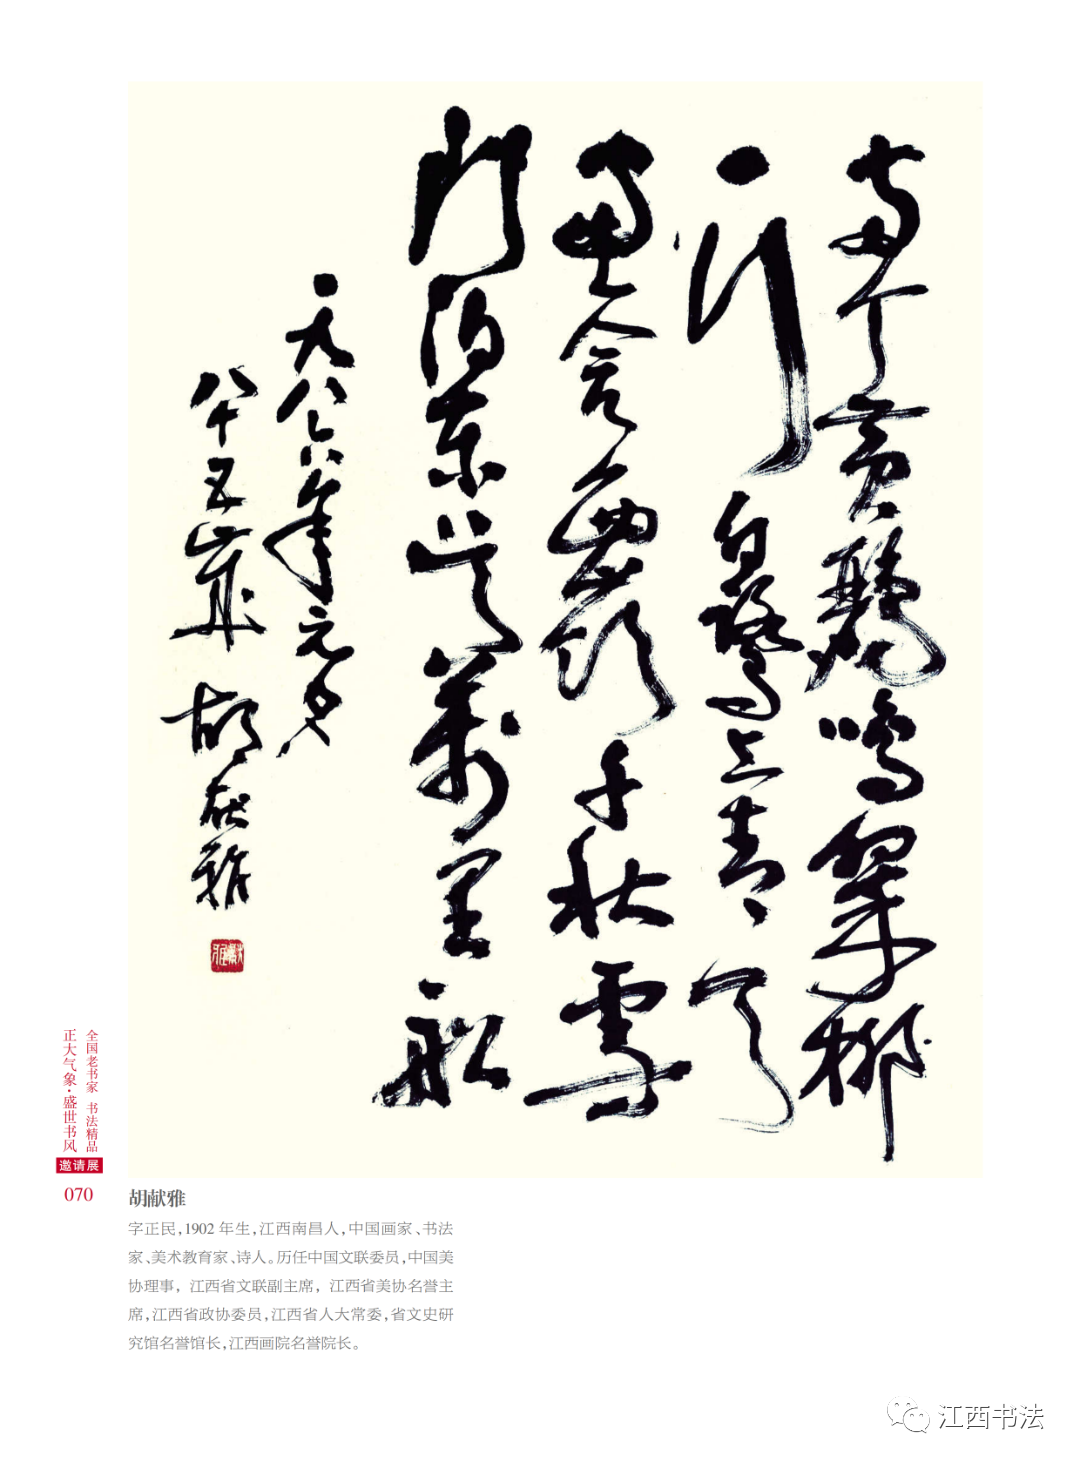 兩个黃鸝鳴翠柳
一行白鷺上青天
窗含西嶺千秋雪
門泊東吳萬里船
一九八六年元夕
八十五歲 胡献雅
全国老书家 书法精品
正大气象·盛世书风
邀请展
070
胡献雅
字正民,1902 年生,江西南昌人,中国画家、书法
家、美术教育家、诗人。历任中国文联委员,中国美
协理事, 江西省文联副主席, 江西省美协名誉主
席,江西省政协委员,江西省人大常委,省文史研
究馆名誉馆长,江西画院名誉院长。
江西书法